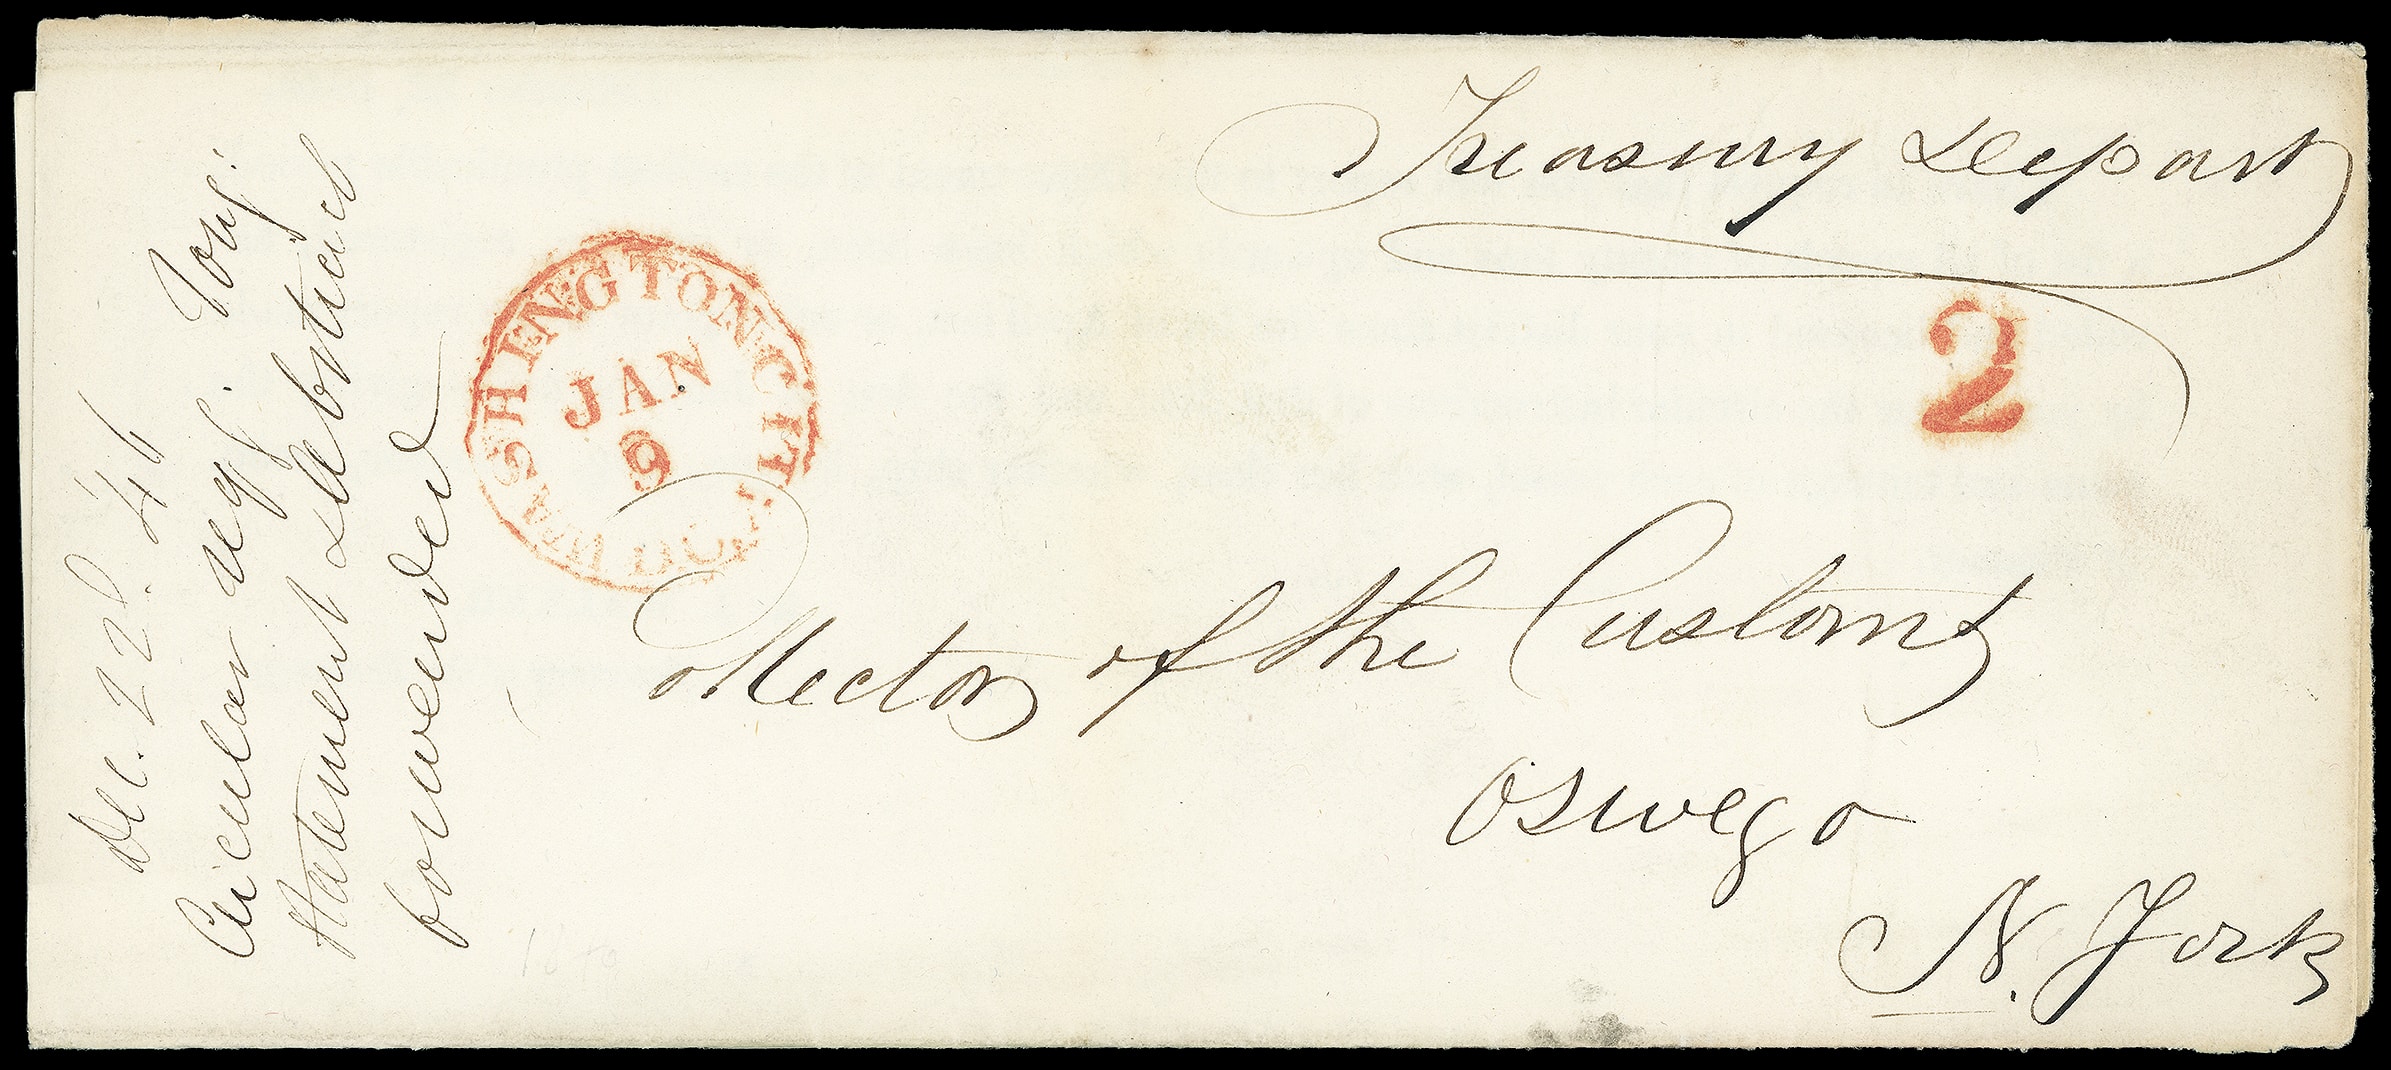 Treasury Depart
2
WASHINGTON CITY D.C.
JAN
9
Collector of the Customs
Oswego
N. York
Dec. 22d. '46
Circular
Statement
forwarded